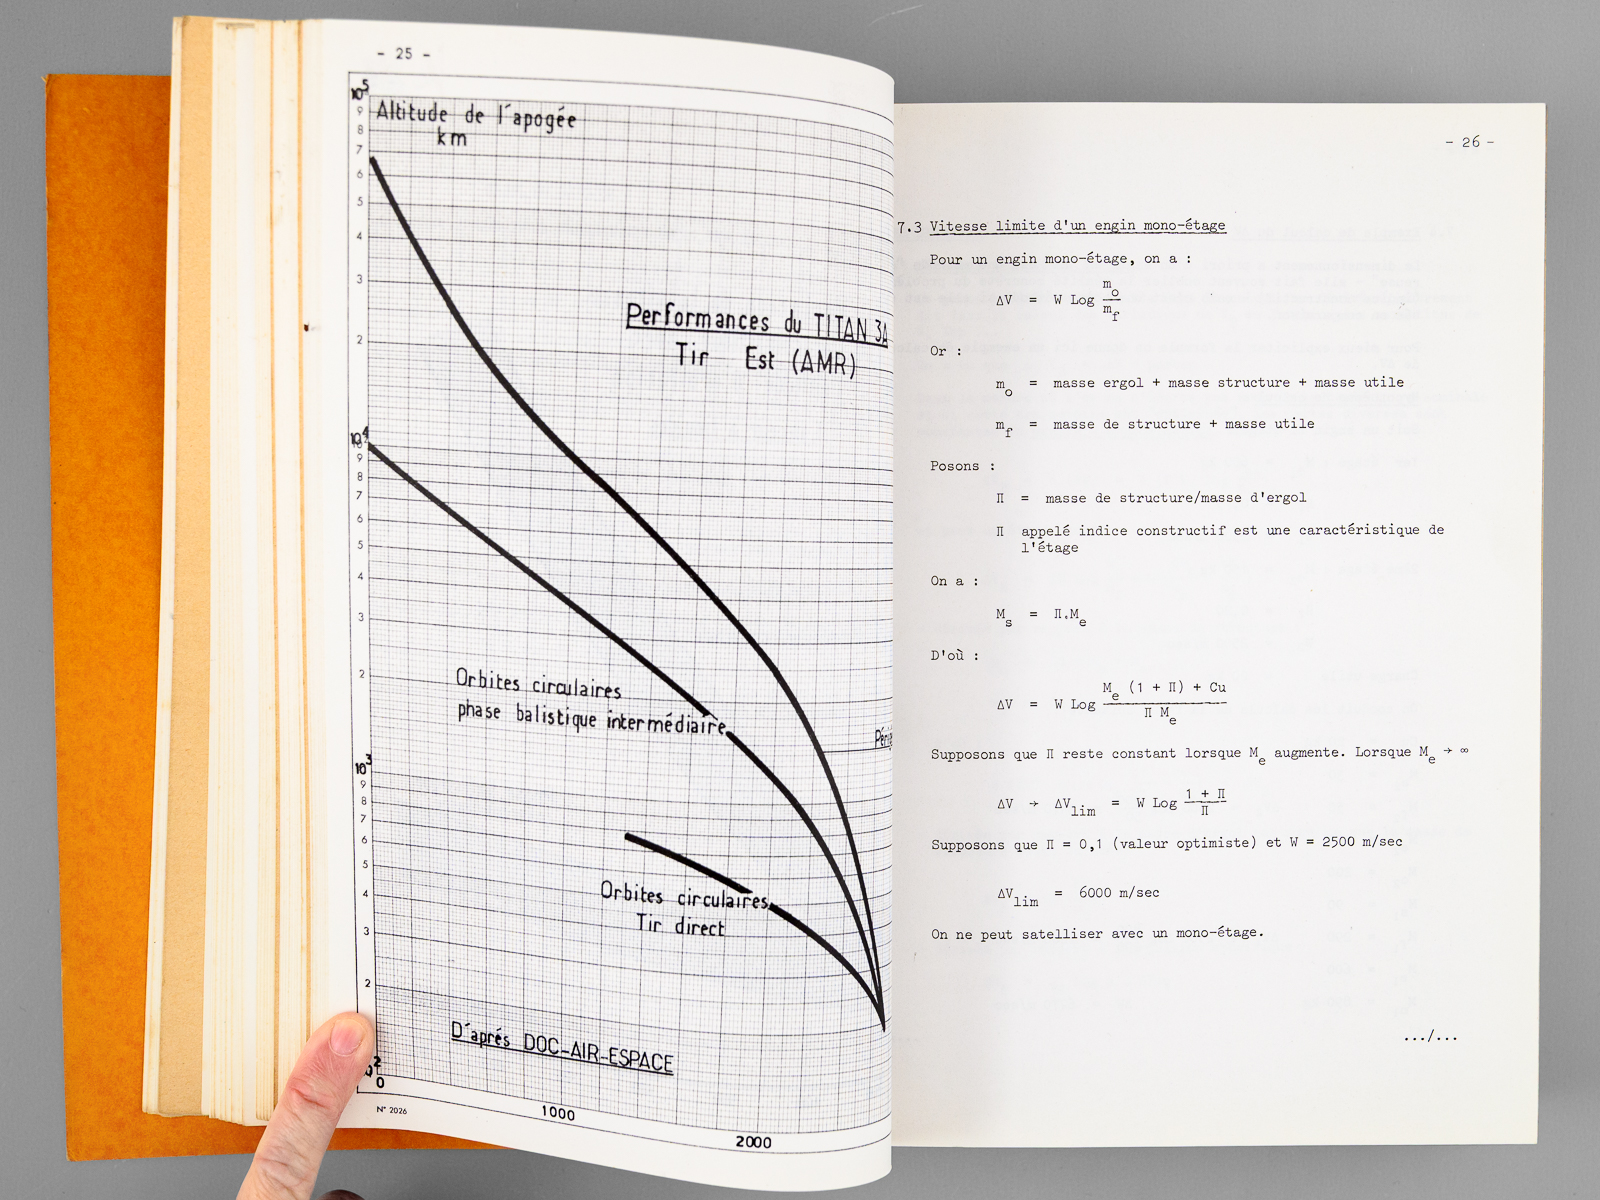 - 25 -
10⁵
9
Altitude de l'apogée
8
km
7
6
5
4
3
Performances du TITAN 3A
2
Tir Est (AMR)
10⁴
9
8
7
6
5
4
3
2
Orbites circulaires
phase balistique intermédiaire
10³
9
8
7
6
5
4
Orbites circulaires
Tir direct
3
2
D'aprés DOC-AIR-ESPACE
0
N° 2026
1000
2000
- 26 -
7.3 Vitesse limite d'un engin mono-étage
Pour un engin mono-étage, on a :
ΔV = W Log m_o / m_f
Or :
m_o = masse ergol + masse structure + masse utile
m_f = masse de structure + masse utile
Posons :
Π = masse de structure/masse d'ergol
Π appelé indice constructif est une caractéristique de
l'étage
On a :
M_s = Π.M_e
D'où :
ΔV = W Log M_e (1 + Π) + Cu / Π M_e
Supposons que Π reste constant lorsque M_e augmente. Lorsque M_e → ∞
ΔV → ΔV_lim = W Log 1 + Π / Π
Supposons que Π = 0,1 (valeur optimiste) et W = 2500 m/sec
ΔV_lim = 6000 m/sec
On ne peut satelliser avec un mono-étage.
.../...